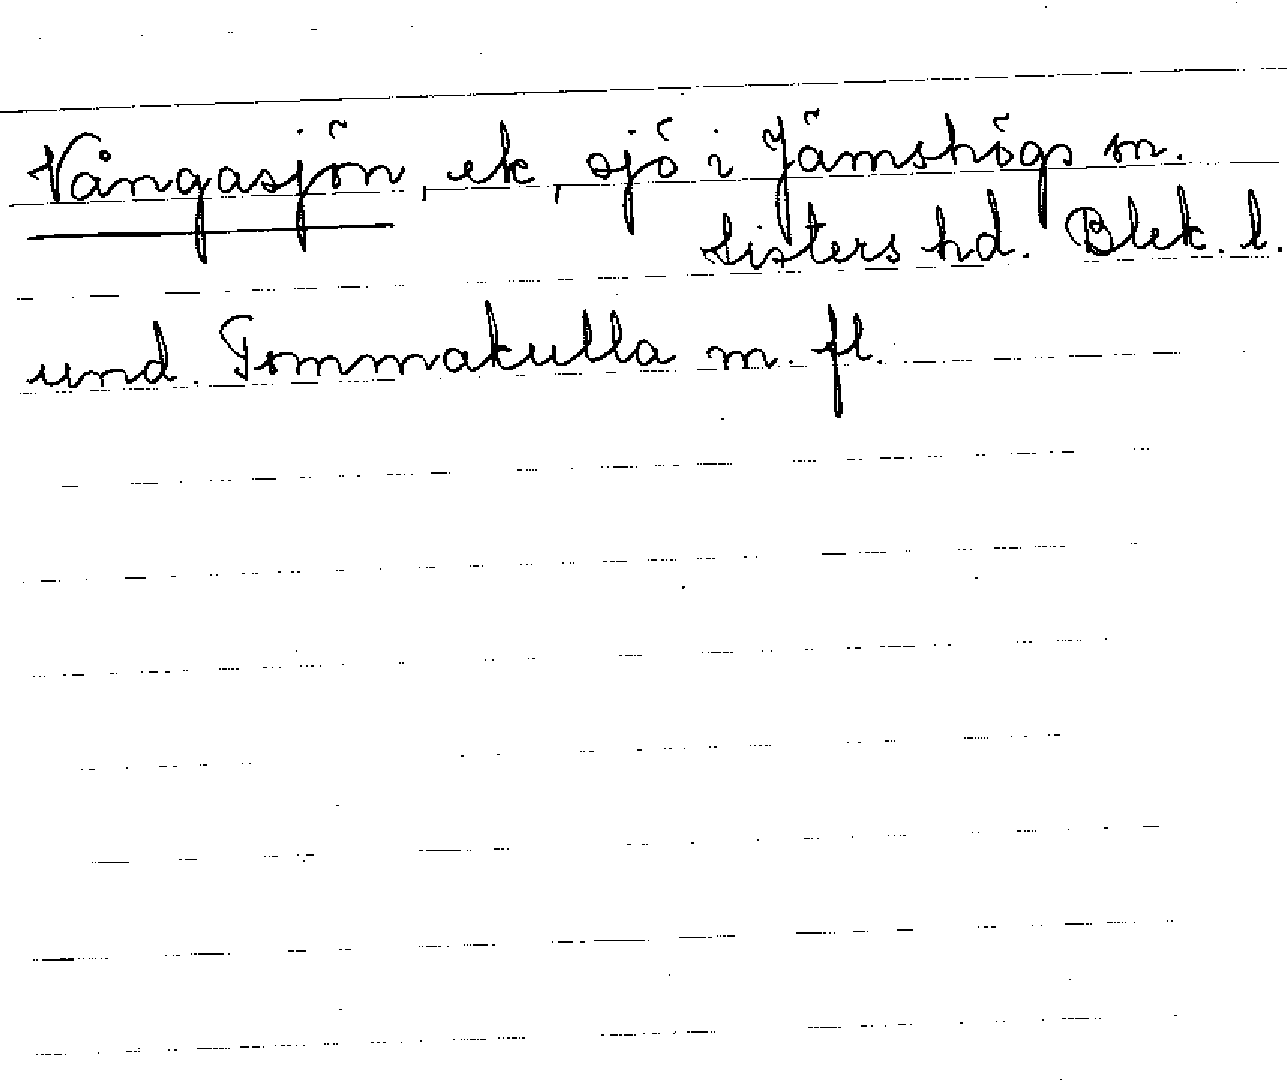 Vångasjön, ek, sjö i Jämshögs sn.
Listers hd. Blek. l.
und. Tommakulla m. fl.